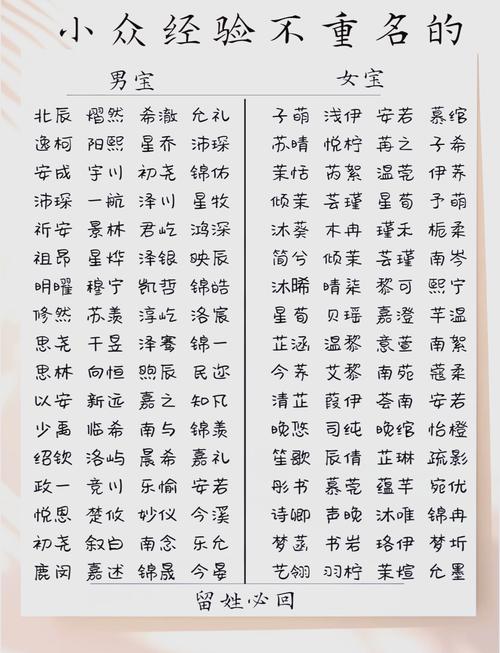 小众经验不重名的
男宝 女宝
北辰 熠然 希澈 允礼 子萌 浅伊 安若 慕绾
逸柯 阳熙 星乔 沛琛 苏晴 悦柠 苒之 子希
安成 宇川 初尧 锦佑 茉恬 芮絮 温莞 伊荞
沛琛 一航 泽川 星牧 倾茉 芸瑾 星荀 予萌
祈安 景林 君屹 鸿深 沐葵 木冉 瑾禾 栀柔
祖昂 星烨 泽银 映辰 简兮 倾茉 芸瑾 南岑
明曜 穆宁 凯哲 锦皓 沐晞 晴柒 黎可 熙宁
修然 苏羡 淳屹 洛宸 星荀 贝瑶 嘉澄 芊温
思尧 干昱 泽骞 锦一 芷涵 温黎 意萱 南絮
思林 向恒 煦辰 民迩 今荞 艾黎 南苑 蔻柔
以安 新远 嘉之 知凡 清芷 葭伊 荟南 安若
少禹 临希 南与 锦羡 晚悠 司纯 晚绾 怡橙
绍钦 洛屿 晨希 嘉礼 笙歌 辰倩 芷琳 疏影
政一 竞川 乐愉 安若 彤书 慕莞 蕴芊 宛优
悦恩 楚攸 妙仪 今溪 诗卿 声晚 沐唯 锦冉
初尧 叙白 南念 乐允 梦菡 书岩 珞伊 梦圻
鹿闵 嘉述 锦晟 今晏 艺翎 羽柠 茉煊 允墨
留姓必回